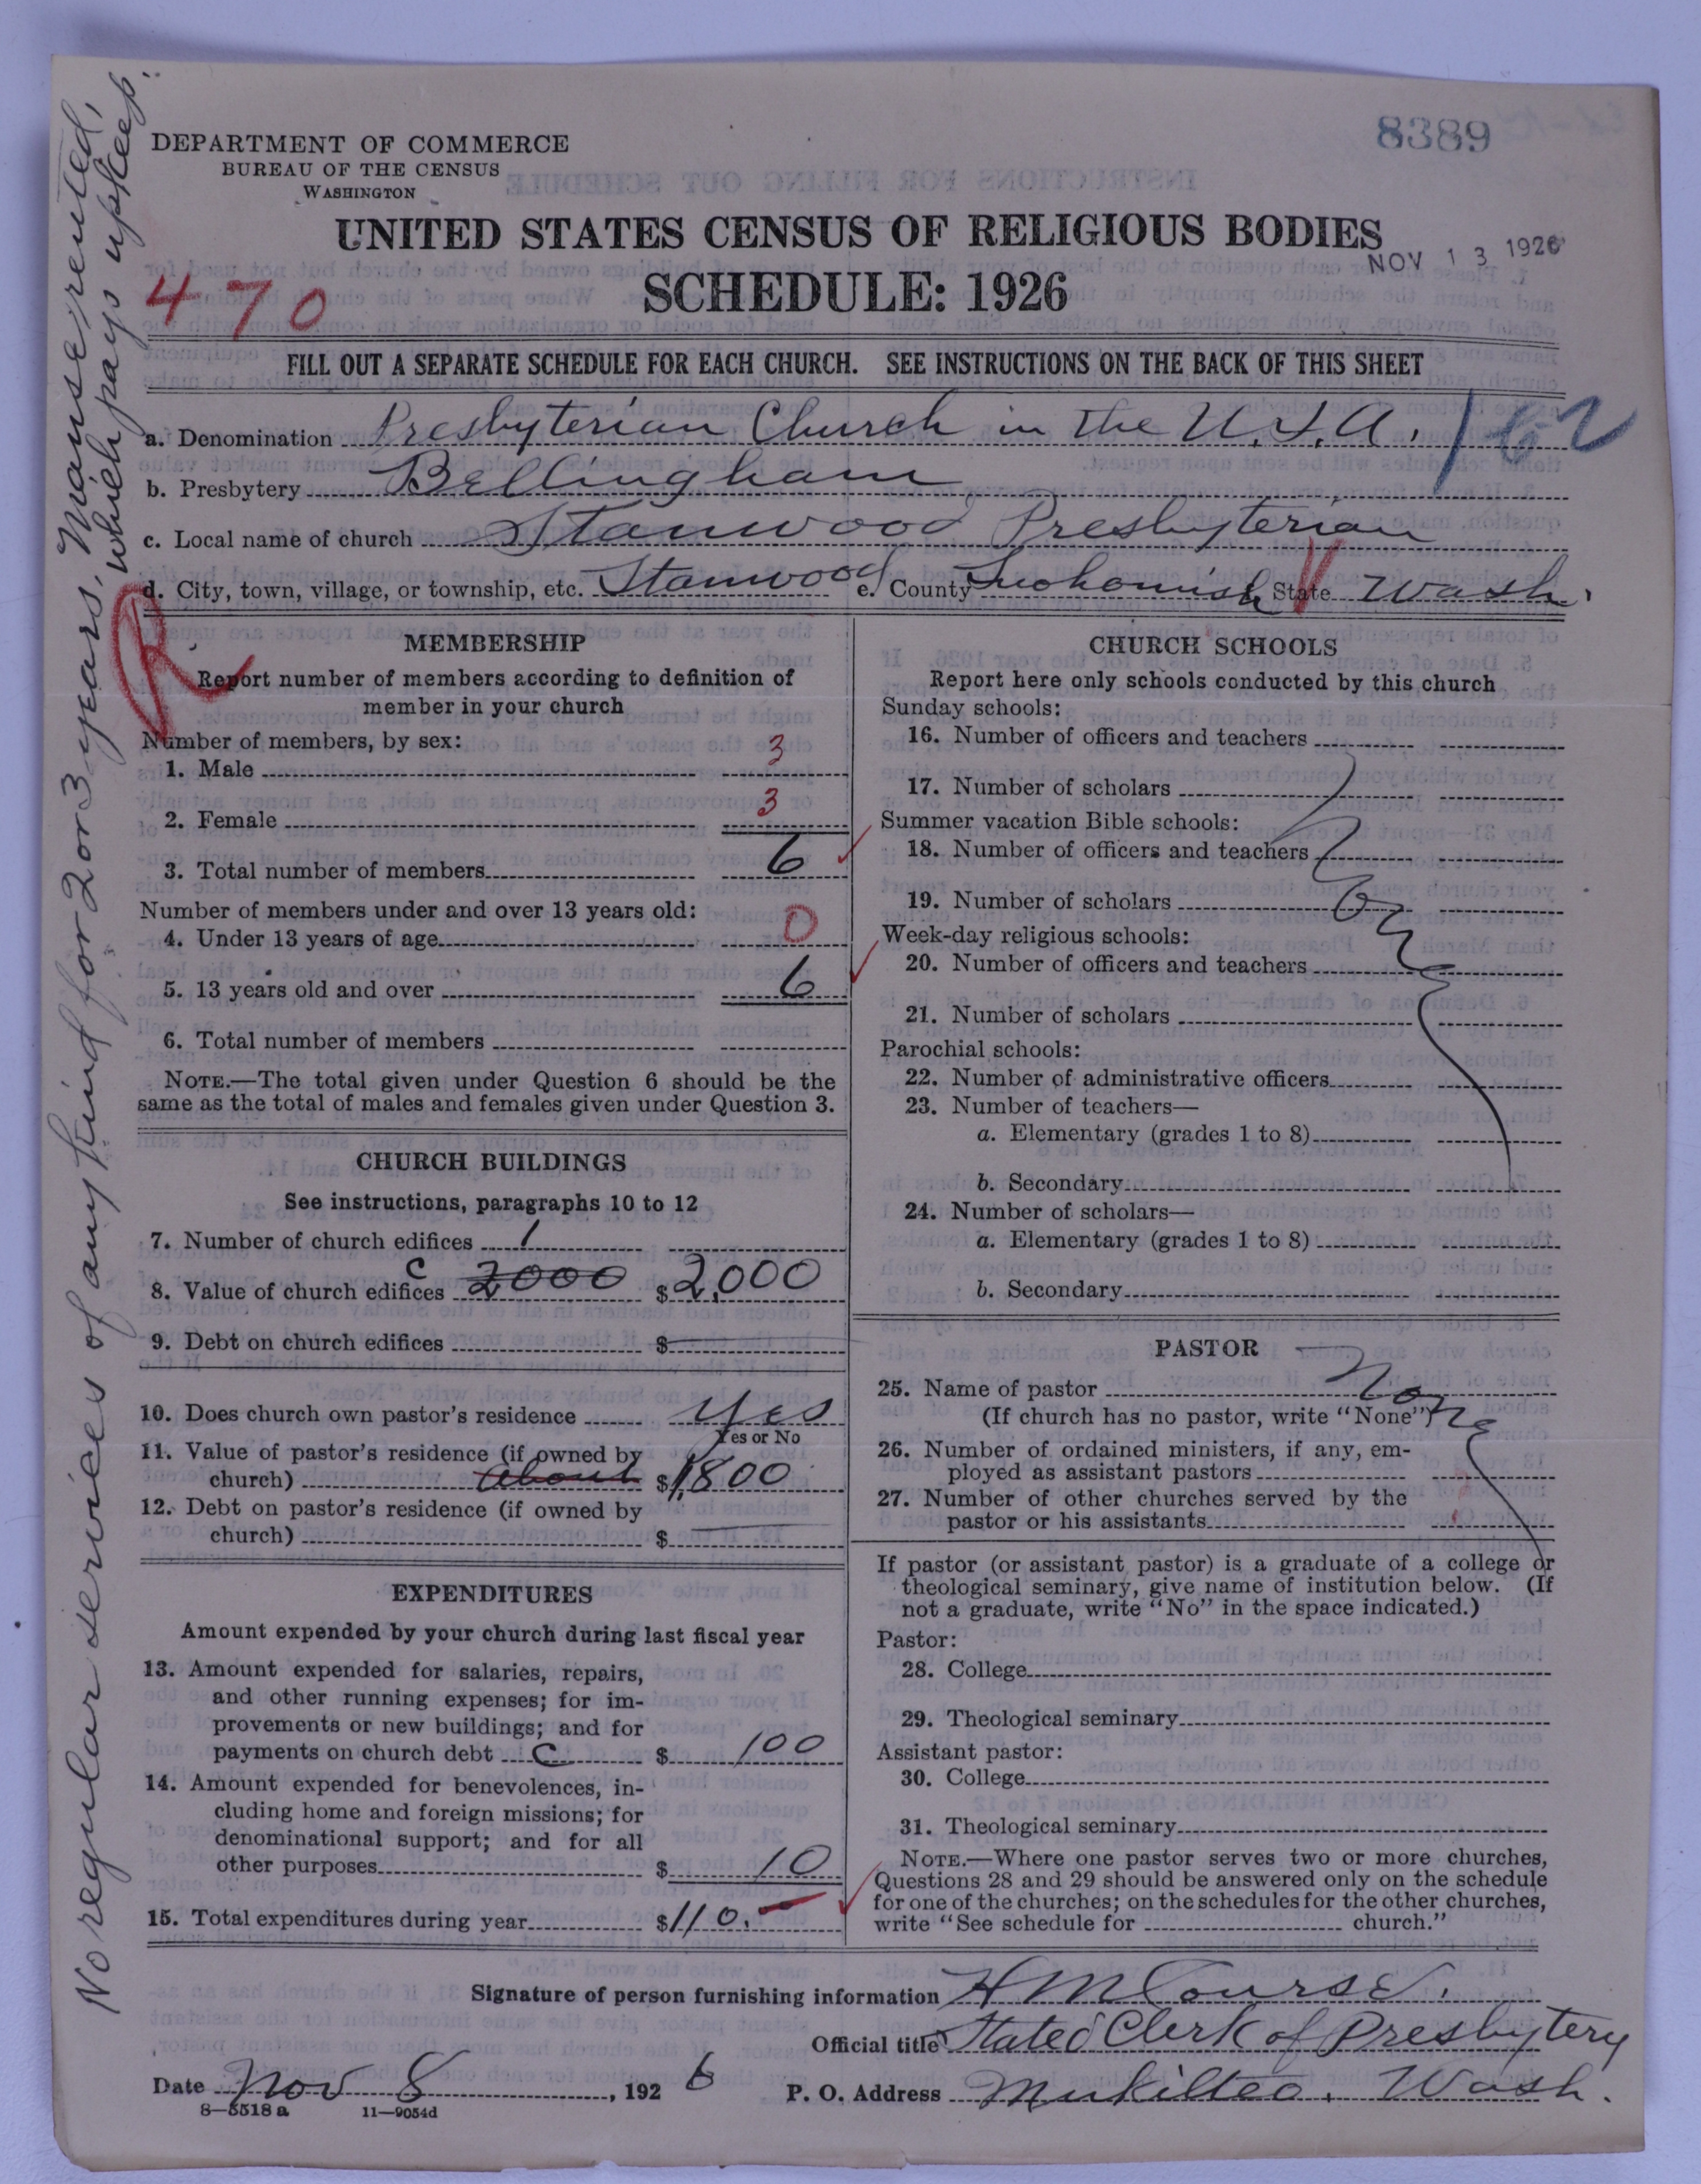 8389
DEPARTMENT OF COMMERCE
BUREAU OF THE CENSUS
WASHINGTON
UNITED STATES CENSUS OF RELIGIOUS BODIES
NOV 13 1926
470
SCHEDULE: 1926
FILL OUT A SEPARATE SCHEDULE FOR EACH CHURCH. SEE INSTRUCTIONS ON THE BACK OF THIS SHEET
a. Denomination Presbyterian Church in the U.S.A.
b. Presbytery Bellingham
c. Local name of church Stanwood Presbyterian
d. City, town, village, or township, etc. Stanwood e. County Snohomish State Wash.
R
MEMBERSHIP
Report number of members according to definition of
member in your church
Number of members, by sex:
1. Male 3
2. Female 3
3. Total number of members 6
Number of members under and over 13 years old:
4. Under 13 years of age 0
5. 13 years old and over 6
6. Total number of members
NOTE.—The total given under Question 6 should be the
same as the total of males and females given under Question 3.
CHURCH BUILDINGS
See instructions, paragraphs 10 to 12
7. Number of church edifices 1
8. Value of church edifices C 2000 $2,000
9. Debt on church edifices $
10. Does church own pastor's residence Yes
Yes or No
11. Value of pastor's residence (if owned by
church) about $1,800
12. Debt on pastor's residence (if owned by
church) $
EXPENDITURES
Amount expended by your church during last fiscal year
13. Amount expended for salaries, repairs,
and other running expenses; for im-
provements or new buildings; and for
payments on church debt C $ 100
14. Amount expended for benevolences, in-
cluding home and foreign missions; for
denominational support; and for all
other purposes $ 10
15. Total expenditures during year $110.—
CHURCH SCHOOLS
Report here only schools conducted by this church
Sunday schools:
16. Number of officers and teachers
17. Number of scholars
Summer vacation Bible schools:
18. Number of officers and teachers
19. Number of scholars
Week-day religious schools:
20. Number of officers and teachers
21. Number of scholars
Parochial schools:
22. Number of administrative officers
23. Number of teachers—
a. Elementary (grades 1 to 8)
b. Secondary
24. Number of scholars—
a. Elementary (grades 1 to 8)
b. Secondary
PASTOR
25. Name of pastor None
(If church has no pastor, write "None")
26. Number of ordained ministers, if any, em-
ployed as assistant pastors
27. Number of other churches served by the
pastor or his assistants
If pastor (or assistant pastor) is a graduate of a college or
theological seminary, give name of institution below. (If
not a graduate, write "No" in the space indicated.)
Pastor:
28. College
29. Theological seminary
Assistant pastor:
30. College
31. Theological seminary
NOTE.—Where one pastor serves two or more churches,
Questions 28 and 29 should be answered only on the schedule
for one of the churches; on the schedules for the other churches,
write "See schedule for church."
Signature of person furnishing information H M Course.
Official title Stated Clerk of Presbytery
Date Nov 8, 1926 P. O. Address Mukilteo, Wash.
8—5518 a 11—9054d
No regular services of any kind for 2 or 3 years, Manse rented,
which pays upkeep.